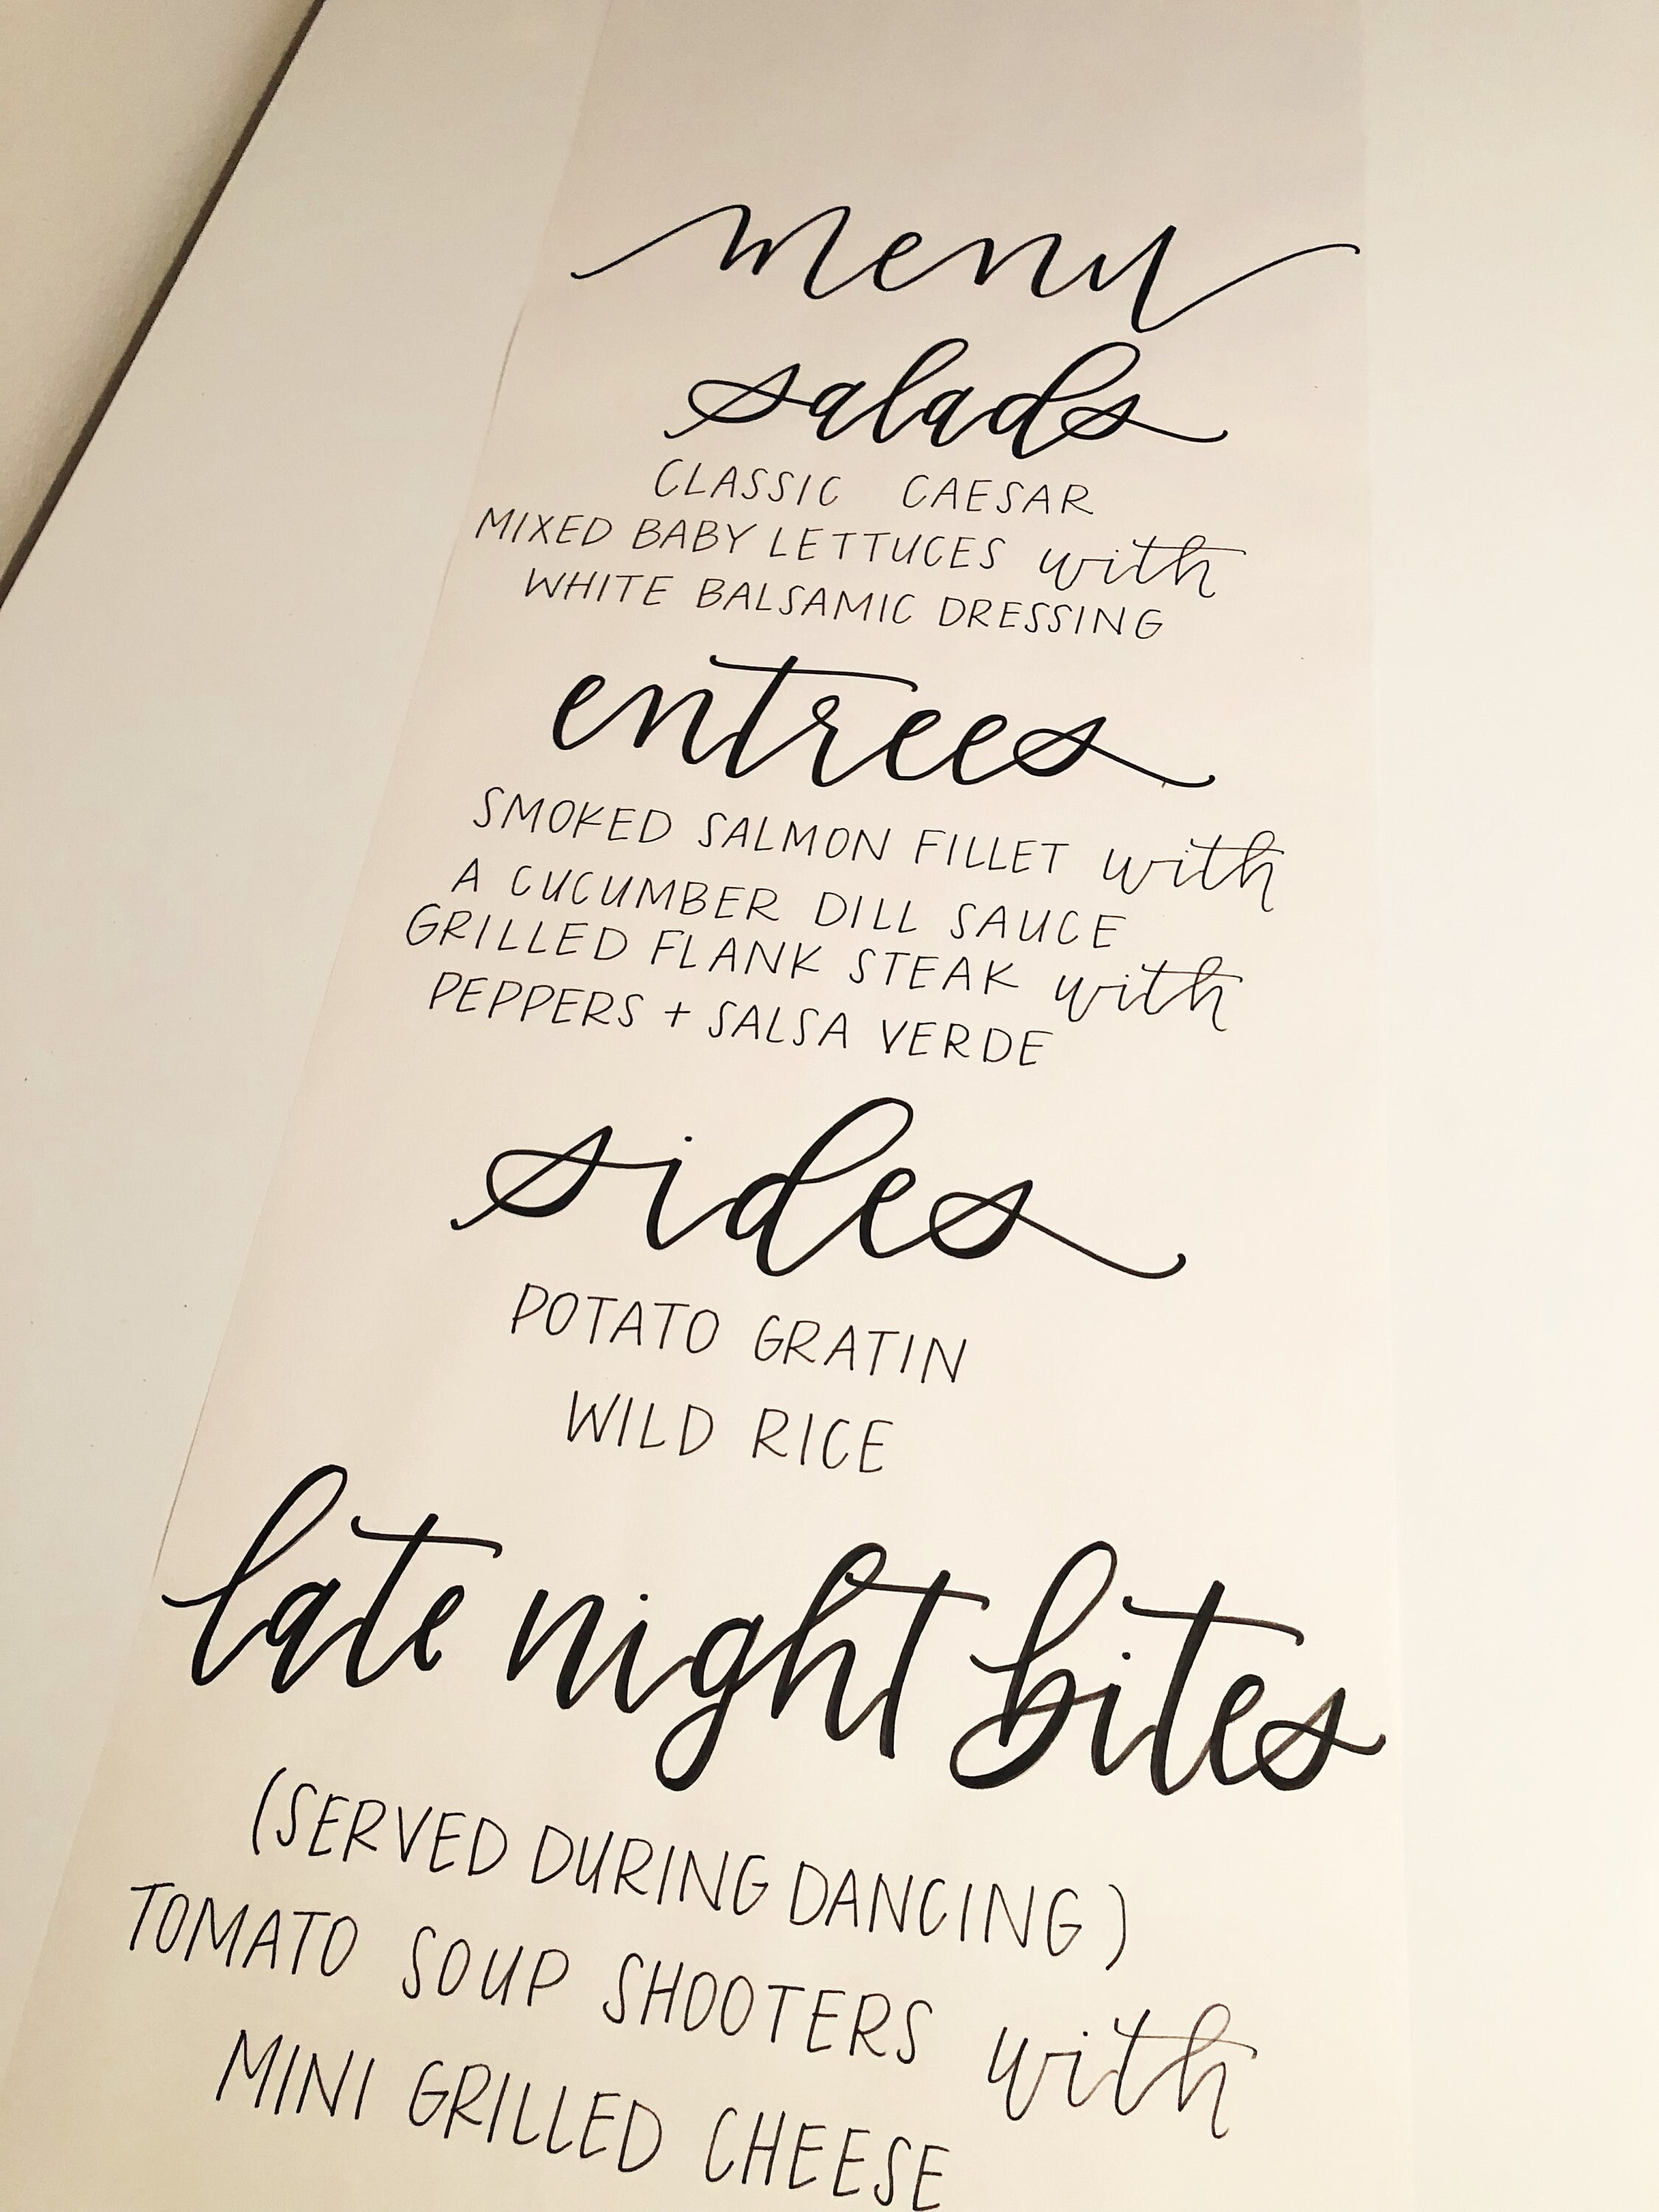 menu
salads
CLASSIC CAESAR
MIXED BABY LETTUCES with
WHITE BALSAMIC DRESSING
entrees
SMOKED SALMON FILLET with
A CUCUMBER DILL SAUCE
GRILLED FLANK STEAK with
PEPPERS + SALSA VERDE
sides
POTATO GRATIN
WILD RICE
late night bites
(SERVED DURING DANCING)
TOMATO SOUP SHOOTERS with
MINI GRILLED CHEESE